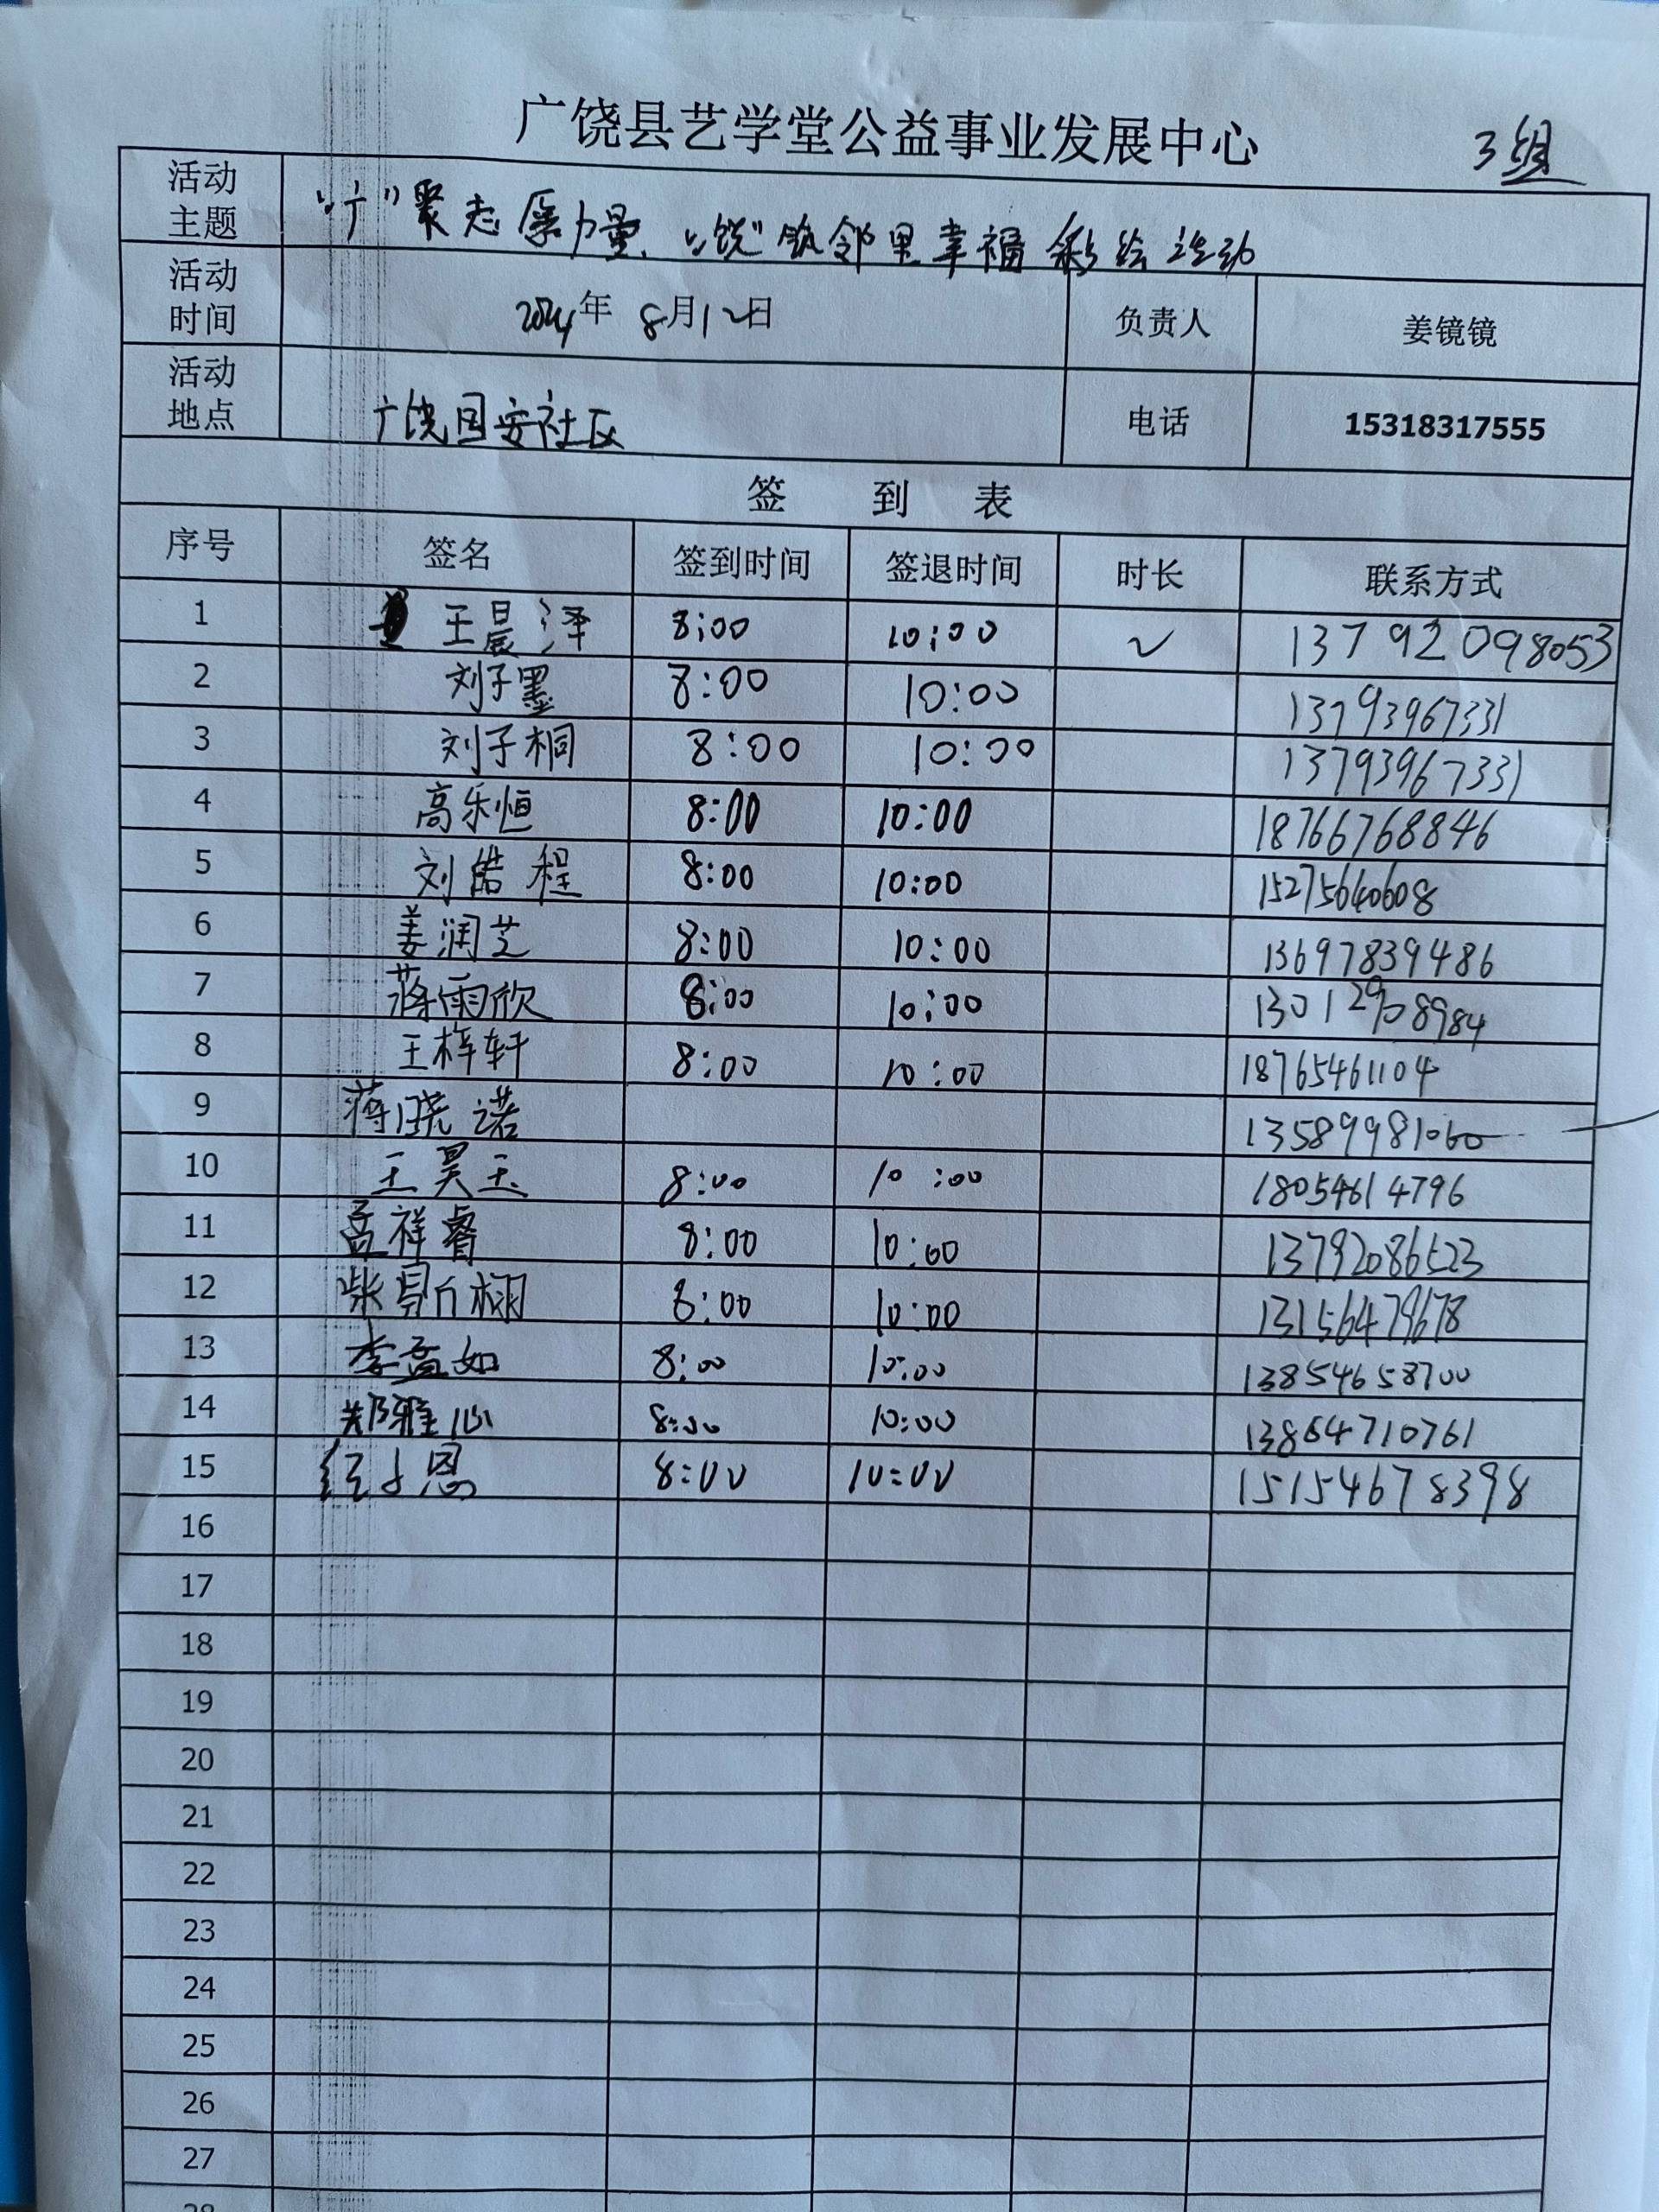 广饶县艺学堂公益事业发展中心 3组
活动主题 “广”聚志愿力量、“饶”筑邻里幸福彩绘活动
活动时间 2024年 8月12日 负责人 姜镜镜
活动地点 广饶国安社区 电话 15318317555
签到表
序号 签名 签到时间 签退时间 时长 联系方式
1 王晨泽 8:00 10:00 ✓ 13792098053
2 刘子墨 8:00 10:00 13793967331
3 刘子桐 8:00 10:00 13793967331
4 高乐恒 8:00 10:00 18766768846
5 刘皓程 8:00 10:00 15275640608
6 姜润芝 8:00 10:00 13697839486
7 蒋雨欣 8:00 10:00 13012908984
8 王梓轩 8:00 10:00 18765461104
9 蒋晓诺 13589981060
10 王昊玉 8:00 10:00 18054614796
11 孟祥睿 8:00 10:00 13792086523
12 柴 8:00 10:00 13156479678
13 李孟如 8:00 10:00 13854658700
14 郑雅心 8:00 10:00 13864710761
15 恩 8:00 10:00 15154678398
16
17
18
19
20
21
22
23
24
25
26
27
28